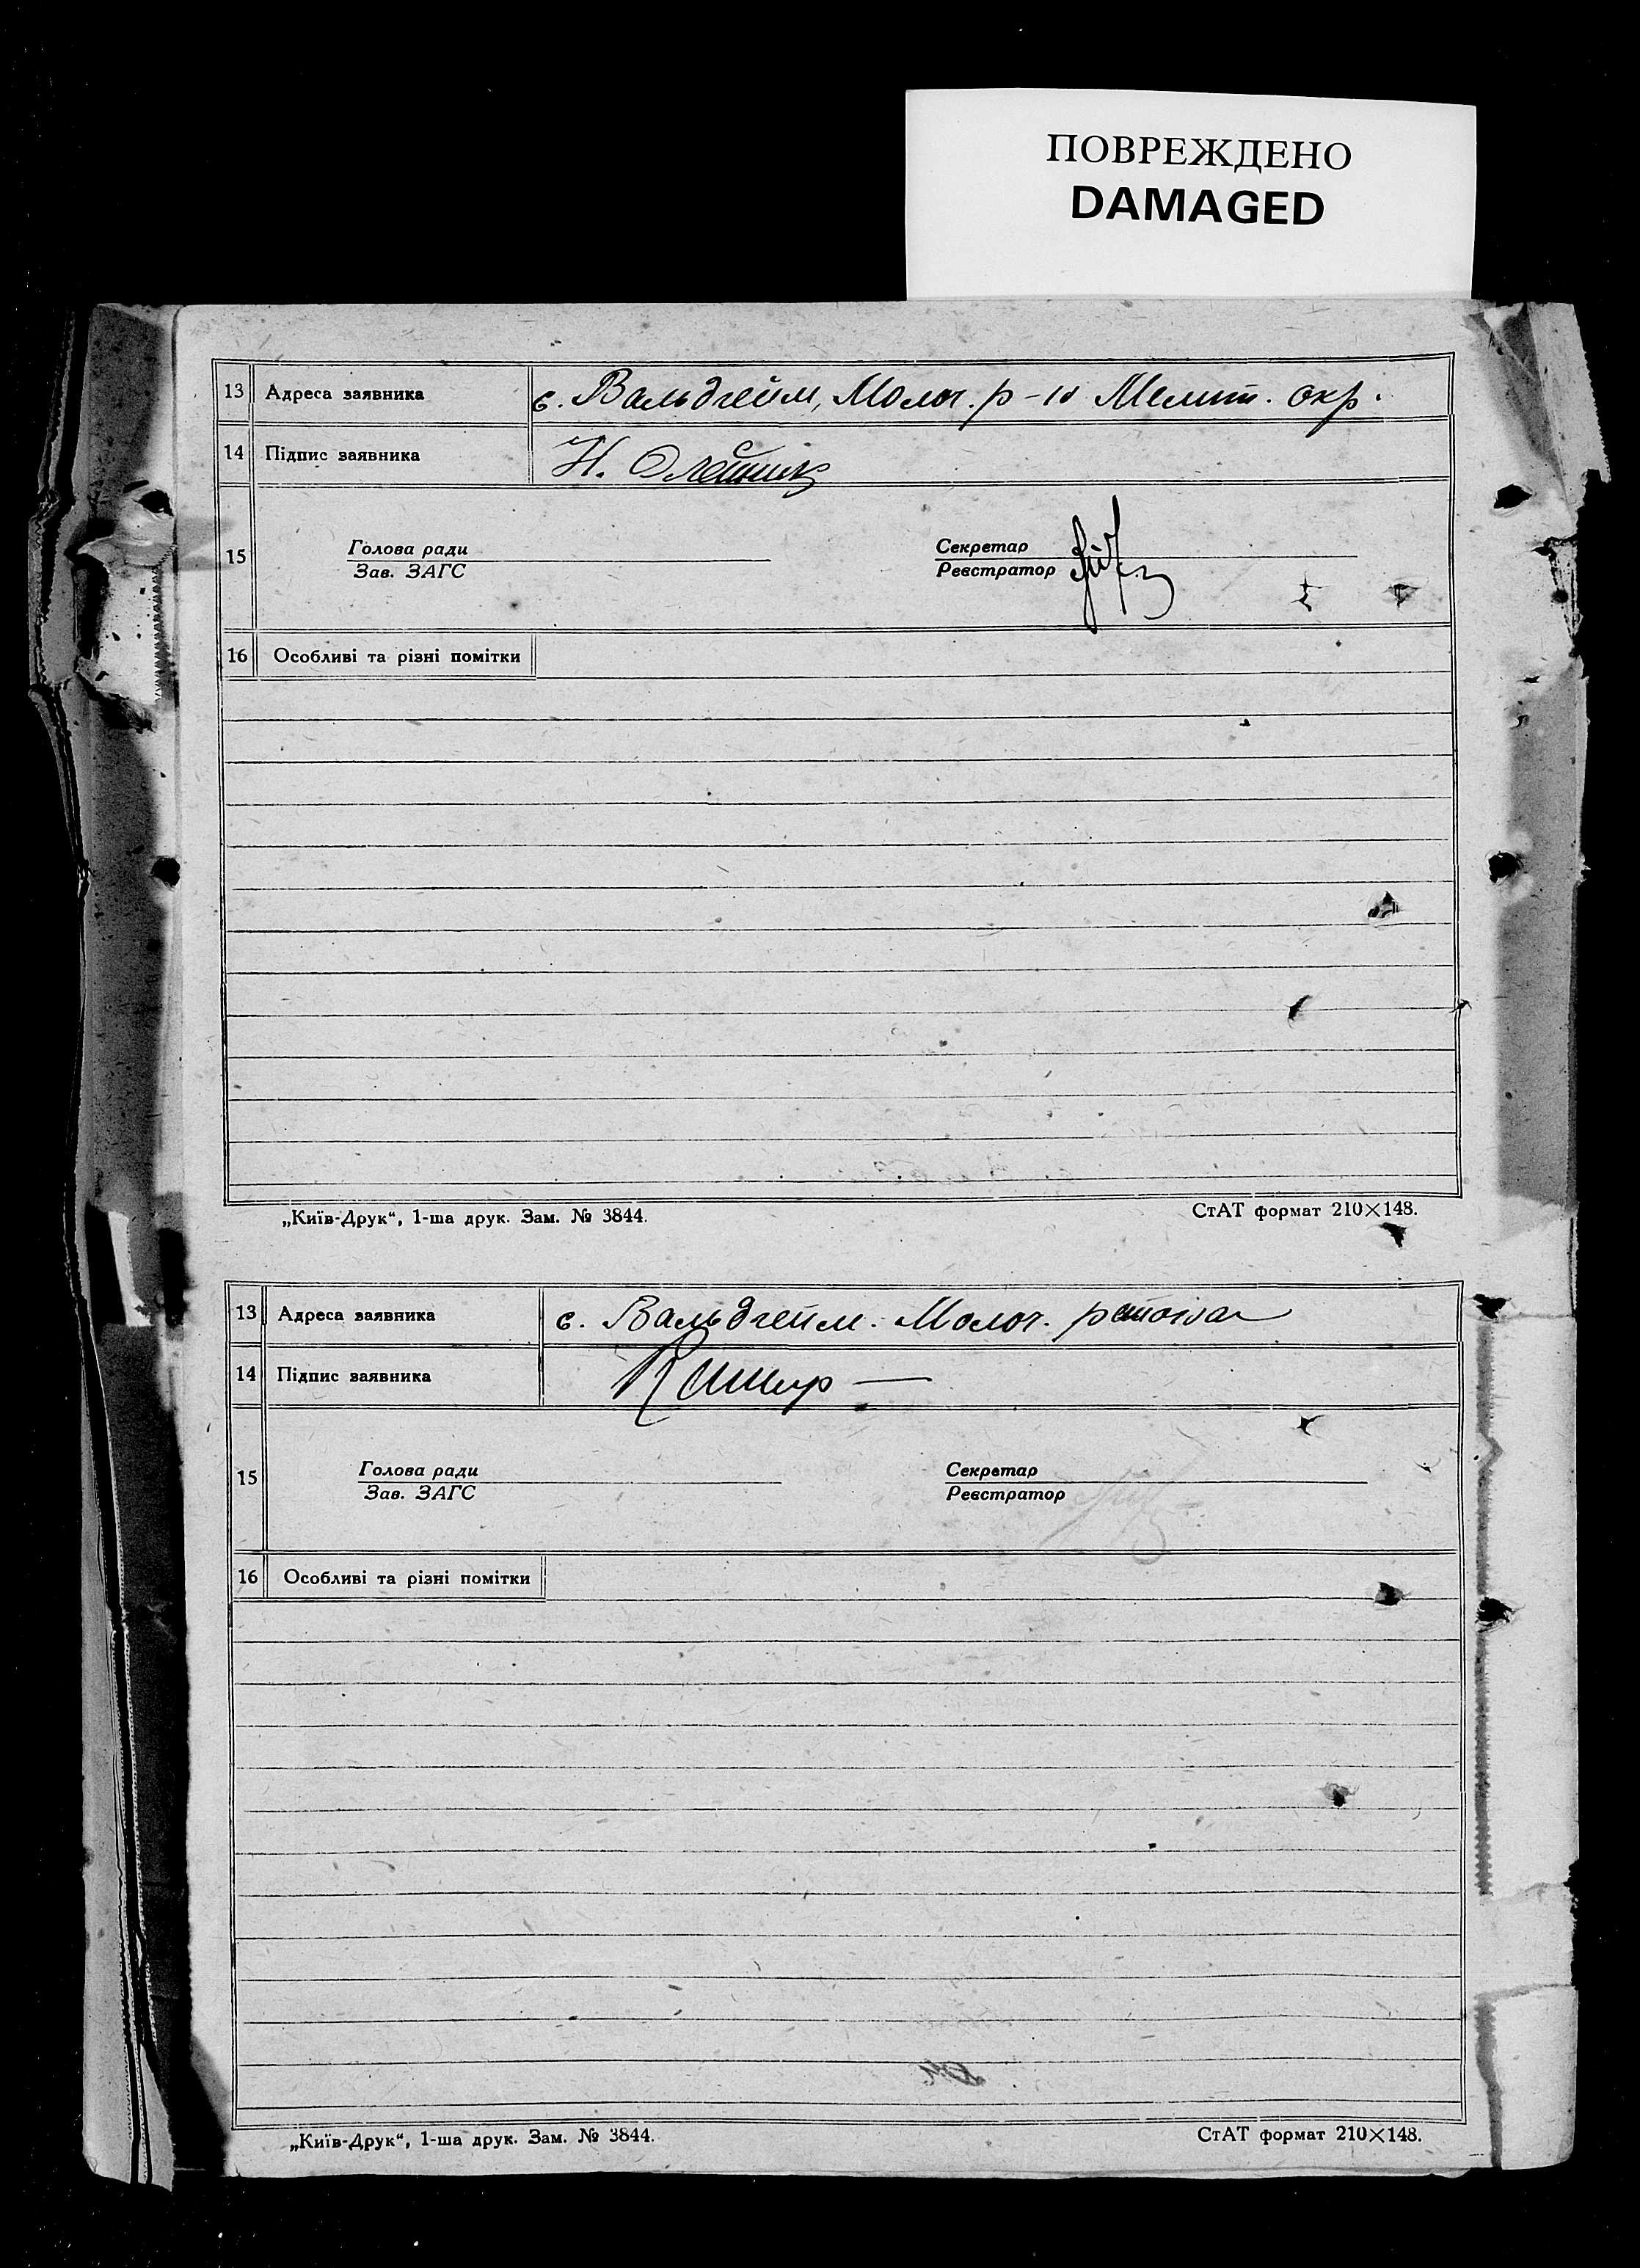 ПОВРЕЖДЕНО
DAMAGED
13 Адреса заявника с. Вальдгейм, Молоч. р-н Мелит. окр.
14 Підпис заявника Н. Олейник
15 Голова ради Секретар
Зав. ЗАГС Реєстратор
16 Особливі та різні помітки
„Київ-Друк“, 1-ша друк. Зам. № 3844. СтАТ формат 210×148.
13 Адреса заявника с. Вальдгейм. Молоч. района
14 Підпис заявника
15 Голова ради Секретар
Зав. ЗАГС Реєстратор
16 Особливі та різні помітки
„Київ-Друк“, 1-ша друк. Зам. № 3844. СтАТ формат 210×148.